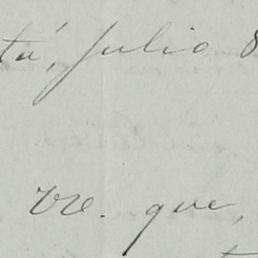 tá, julio 8
Vre. que,